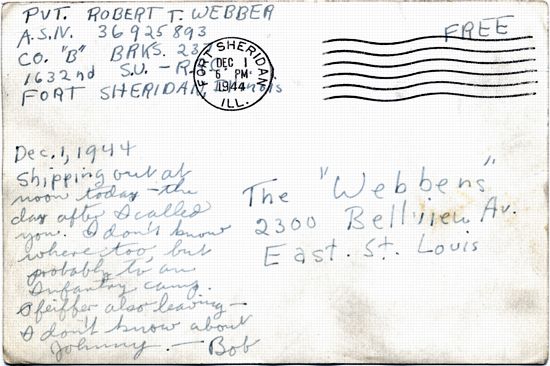 PVT. ROBERT T. WEBBER
A.S.N. 36925893
CO. "B" BRKS. 23
1632nd S.U. - R.
FORT SHERIDAN, Illinois
FREE
FORT SHERIDAN
DEC 1
6 PM
1944
ILL.
Dec. 1, 1944
Shipping out at
noon today - the
day after I called
you. I don't know
where too, but
probably to an
Infantry camp.
Pfeiffer also leaving -
I don't know about
Johnny. - Bob
The "Webbers"
2300 Bellview Av.
East. St. Louis